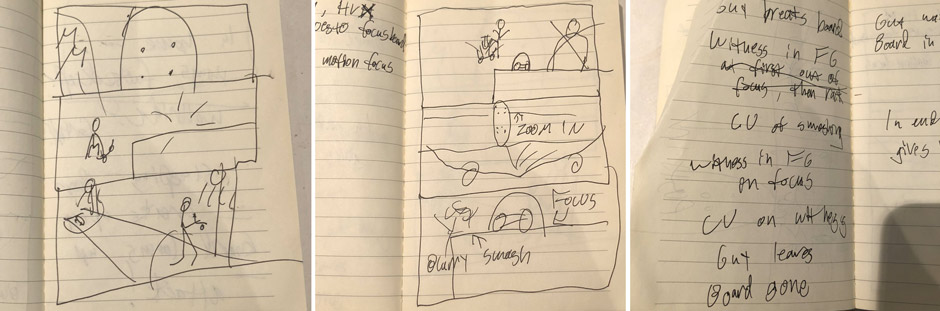 to focus
motion focus
ZOOM IN
FOCUS
Blurry smash
Guy breaks board
Witness in FG
at first out of
focus, then rack
CU of smashing
Witness in FG
on focus
CU on witness
Guy leaves
Board gone
Guy
Board in
In end
gives